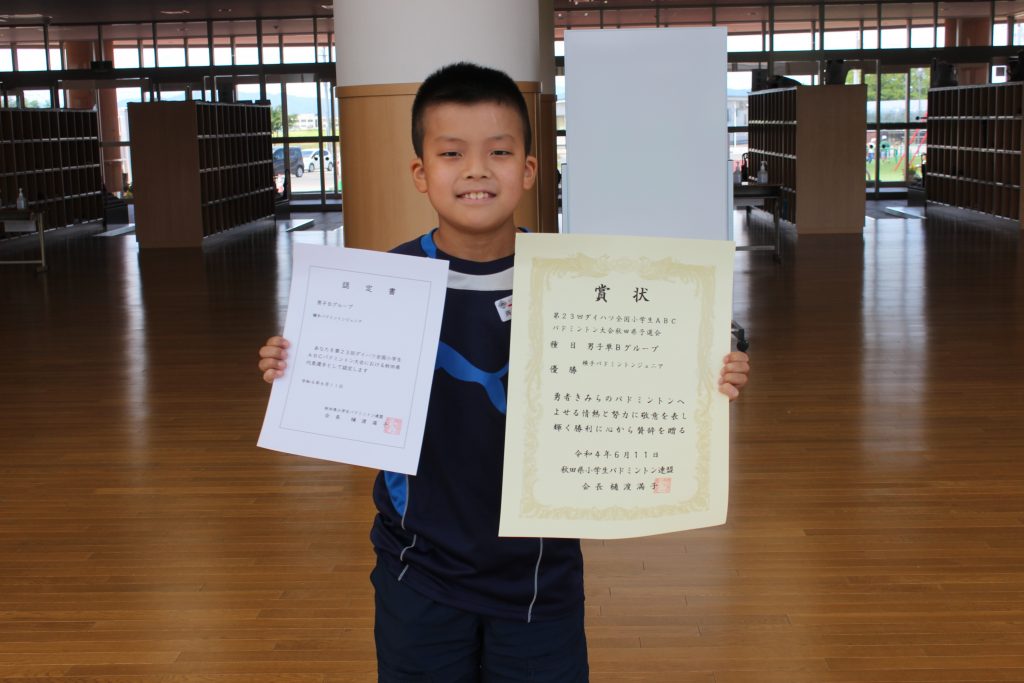 認定書
男子Bグループ
横手バドミントンジュニア
あなたを第23回ダイハツ全国小学生
ABCバドミントン大会における秋田県
代表選手として認定します
令和4年6月11日
秋田県小学生バドミントン連盟
会長 樋渡満子
賞状
第23回ダイハツ全国小学生ABC
バドミントン大会秋田県予選会
種目 男子単Bグループ
優勝 横手バドミントンジュニア
勇者きみらのバドミントンへ
よせる情熱と努力に敬意を表し
輝く勝利に心から賛辞を贈る
令和4年6月11日
秋田県小学生バドミントン連盟
会長 樋渡満子